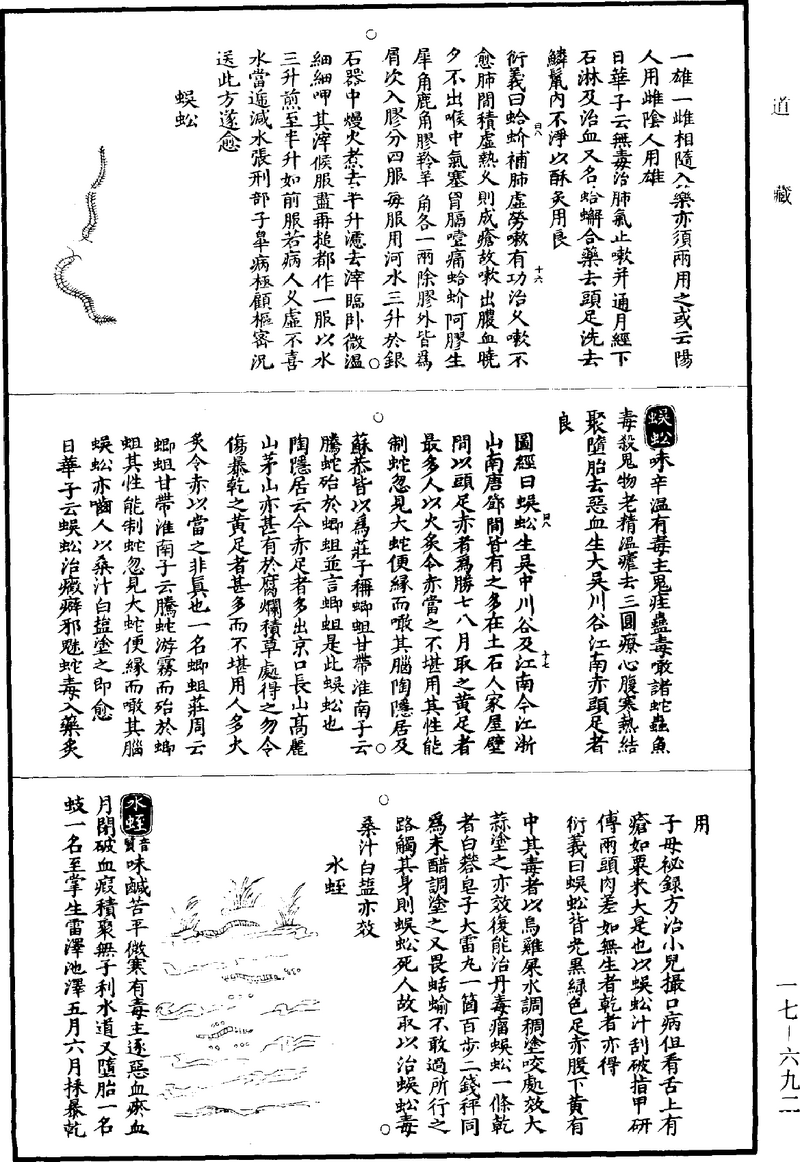 道藏
一雄一雌相隨入藥亦須兩用之或云陽
人用雌陰人用雄
日華子云無毒治肺氣止嗽并通月經下
石淋及治血又名蛤蠏合藥去頭足洗去
鱗鬣內不淨以酥炙用良
衍義曰蛤蚧補肺虛勞嗽有功治久嗽不
愈肺間積虛熱久則成瘡故嗽出膿血曉
夕不出喉中氣塞胷膈噎痛蛤蚧阿膠生
犀角鹿角膠羚羊角各一兩除膠外皆爲
屑次入膠分四服每服用河水三升於銀
石器中熳火煮去半升濾去滓臨臥微溫
細細呷其滓候服盡再搥都作一服以水
三升煎至半升如前服若病人久虛不喜
水當遞減水張刑部子皐病極顧樞密況
送此方遂愈
蜈蚣
蜈蚣味辛溫有毒主鬼疰蠱毒噉諸蛇蟲魚
毒殺鬼物老精溫瘧去三䖝療心腹寒熱結
聚墮胎去惡血生大吳川谷江南赤頭足者
良
圖經曰蜈蚣生吳中川谷及江南今江浙
山南唐鄧間皆有之多在土石人家屋壁
間以頭足赤者爲勝七八月取之黃足者
最多人以火炙令赤當之不堪用其性能
制蛇忽見大蛇便緣而噉其腦陶隱居及
蘇恭皆以爲莊子稱蝍蛆甘帶淮南子云
騰蛇殆於蝍蛆並言蝍蛆是此蜈蚣也
陶隱居云今赤足者多出京口長山高麗
山茅山亦甚有於腐爛積草處得之勿令
傷暴乾之黃足者甚多而不堪用人多火
炙令赤以當之非真也一名蝍蛆莊周云
蝍蛆甘帶淮南子云騰蛇游霧而殆於蝍
蛆其性能制蛇忽見大蛇便緣而噉其腦
蜈蚣亦嚙人以桑汁白鹽塗之即愈
日華子云蜈蚣治癥癖邪魅蛇毒入藥炙
用
子母祕錄方治小兒撮口病但看舌上有
瘡如粟米大是也以蜈蚣汁刮破指甲研
傅兩頭肉差如無生者乾者亦得
衍義曰蜈蚣背光黑綠色足赤腹下黃有
中其毒者以烏雞屎水調稠塗咬處效大
蒜塗之亦效復能治丹毒瘤蜈蚣一條乾
者白礬皂子大雷丸一箇百步二錢秤同
爲末醋調塗之又畏蛞蝓不敢過所行之
路觸其身則蜈蚣死人故取以治蜈蚣毒
桑汁白鹽亦效
水蛭
水蛭音質味鹹苦平微寒有毒主逐惡血瘀血
月閉破血瘕積聚無子利水道又墮胎一名
蚑一名至掌生雷澤池澤五月六月採暴乾
一七－六九二